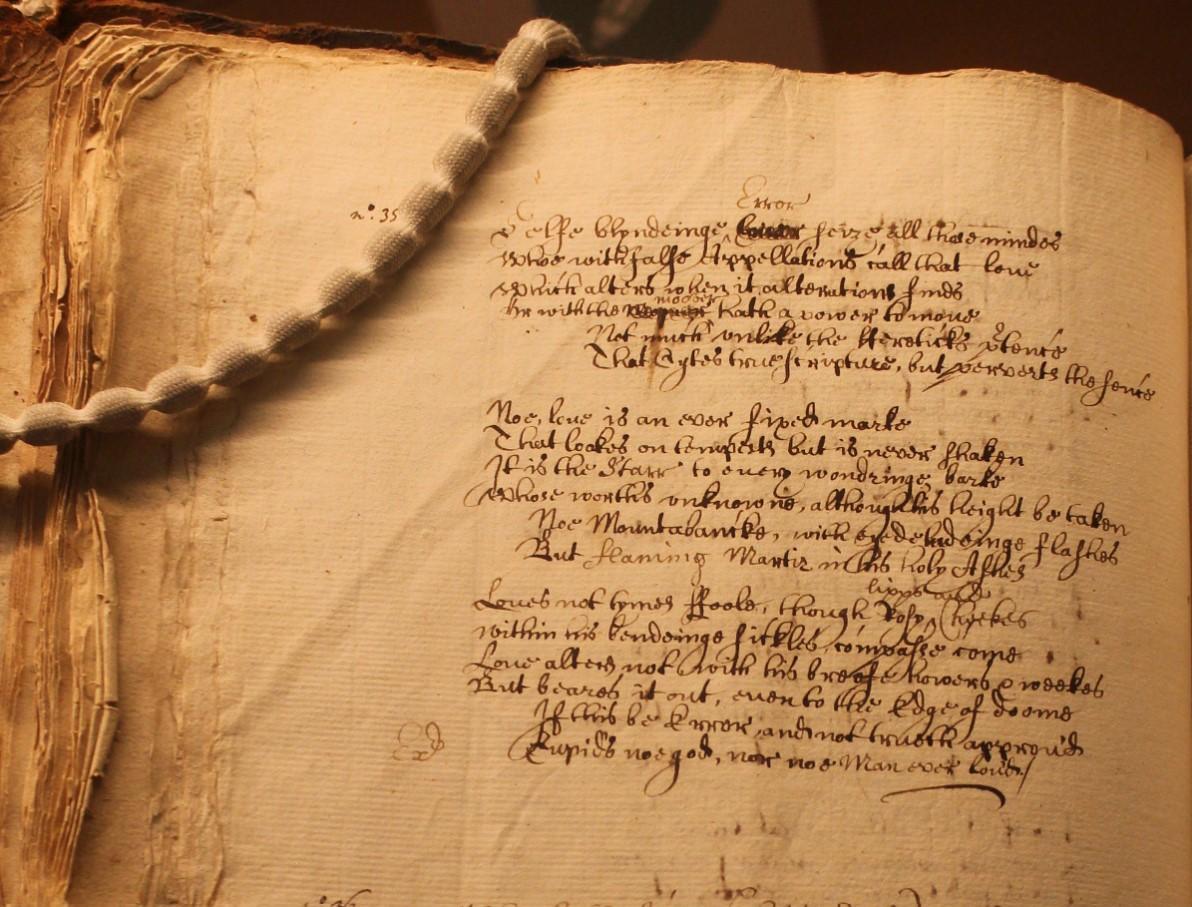 Error
n°. 35
Selfe blyndeinge seize all those mindes
Whoe with false Appellations call that loue
Which alters when it alterations finds
Or with the mover hath a power to moue
Not much vnlike the Hereticks ptence
That Cytes true scripture, but perverts the sence
Noe, loue is an ever fixed marke
That lookes on tempests but is never shaken
It is the Starr to euery wondringe barke
Whose worth's vnknowne, although his height be taken
Noe Mountabancke, with eyedeludeinge flashes
But flameing Martir in his holy Ashes
lipps and
Loues not tymes Foole, though Rosy Cheekes
within his bendeinge sickles compasse come
Loue alters not with his breefe howers & weekes
But beares it out, euen to the Edge of doome
If this be Error and not trueth approu'd
Cupids noe god, nor noe Man ever lou'd